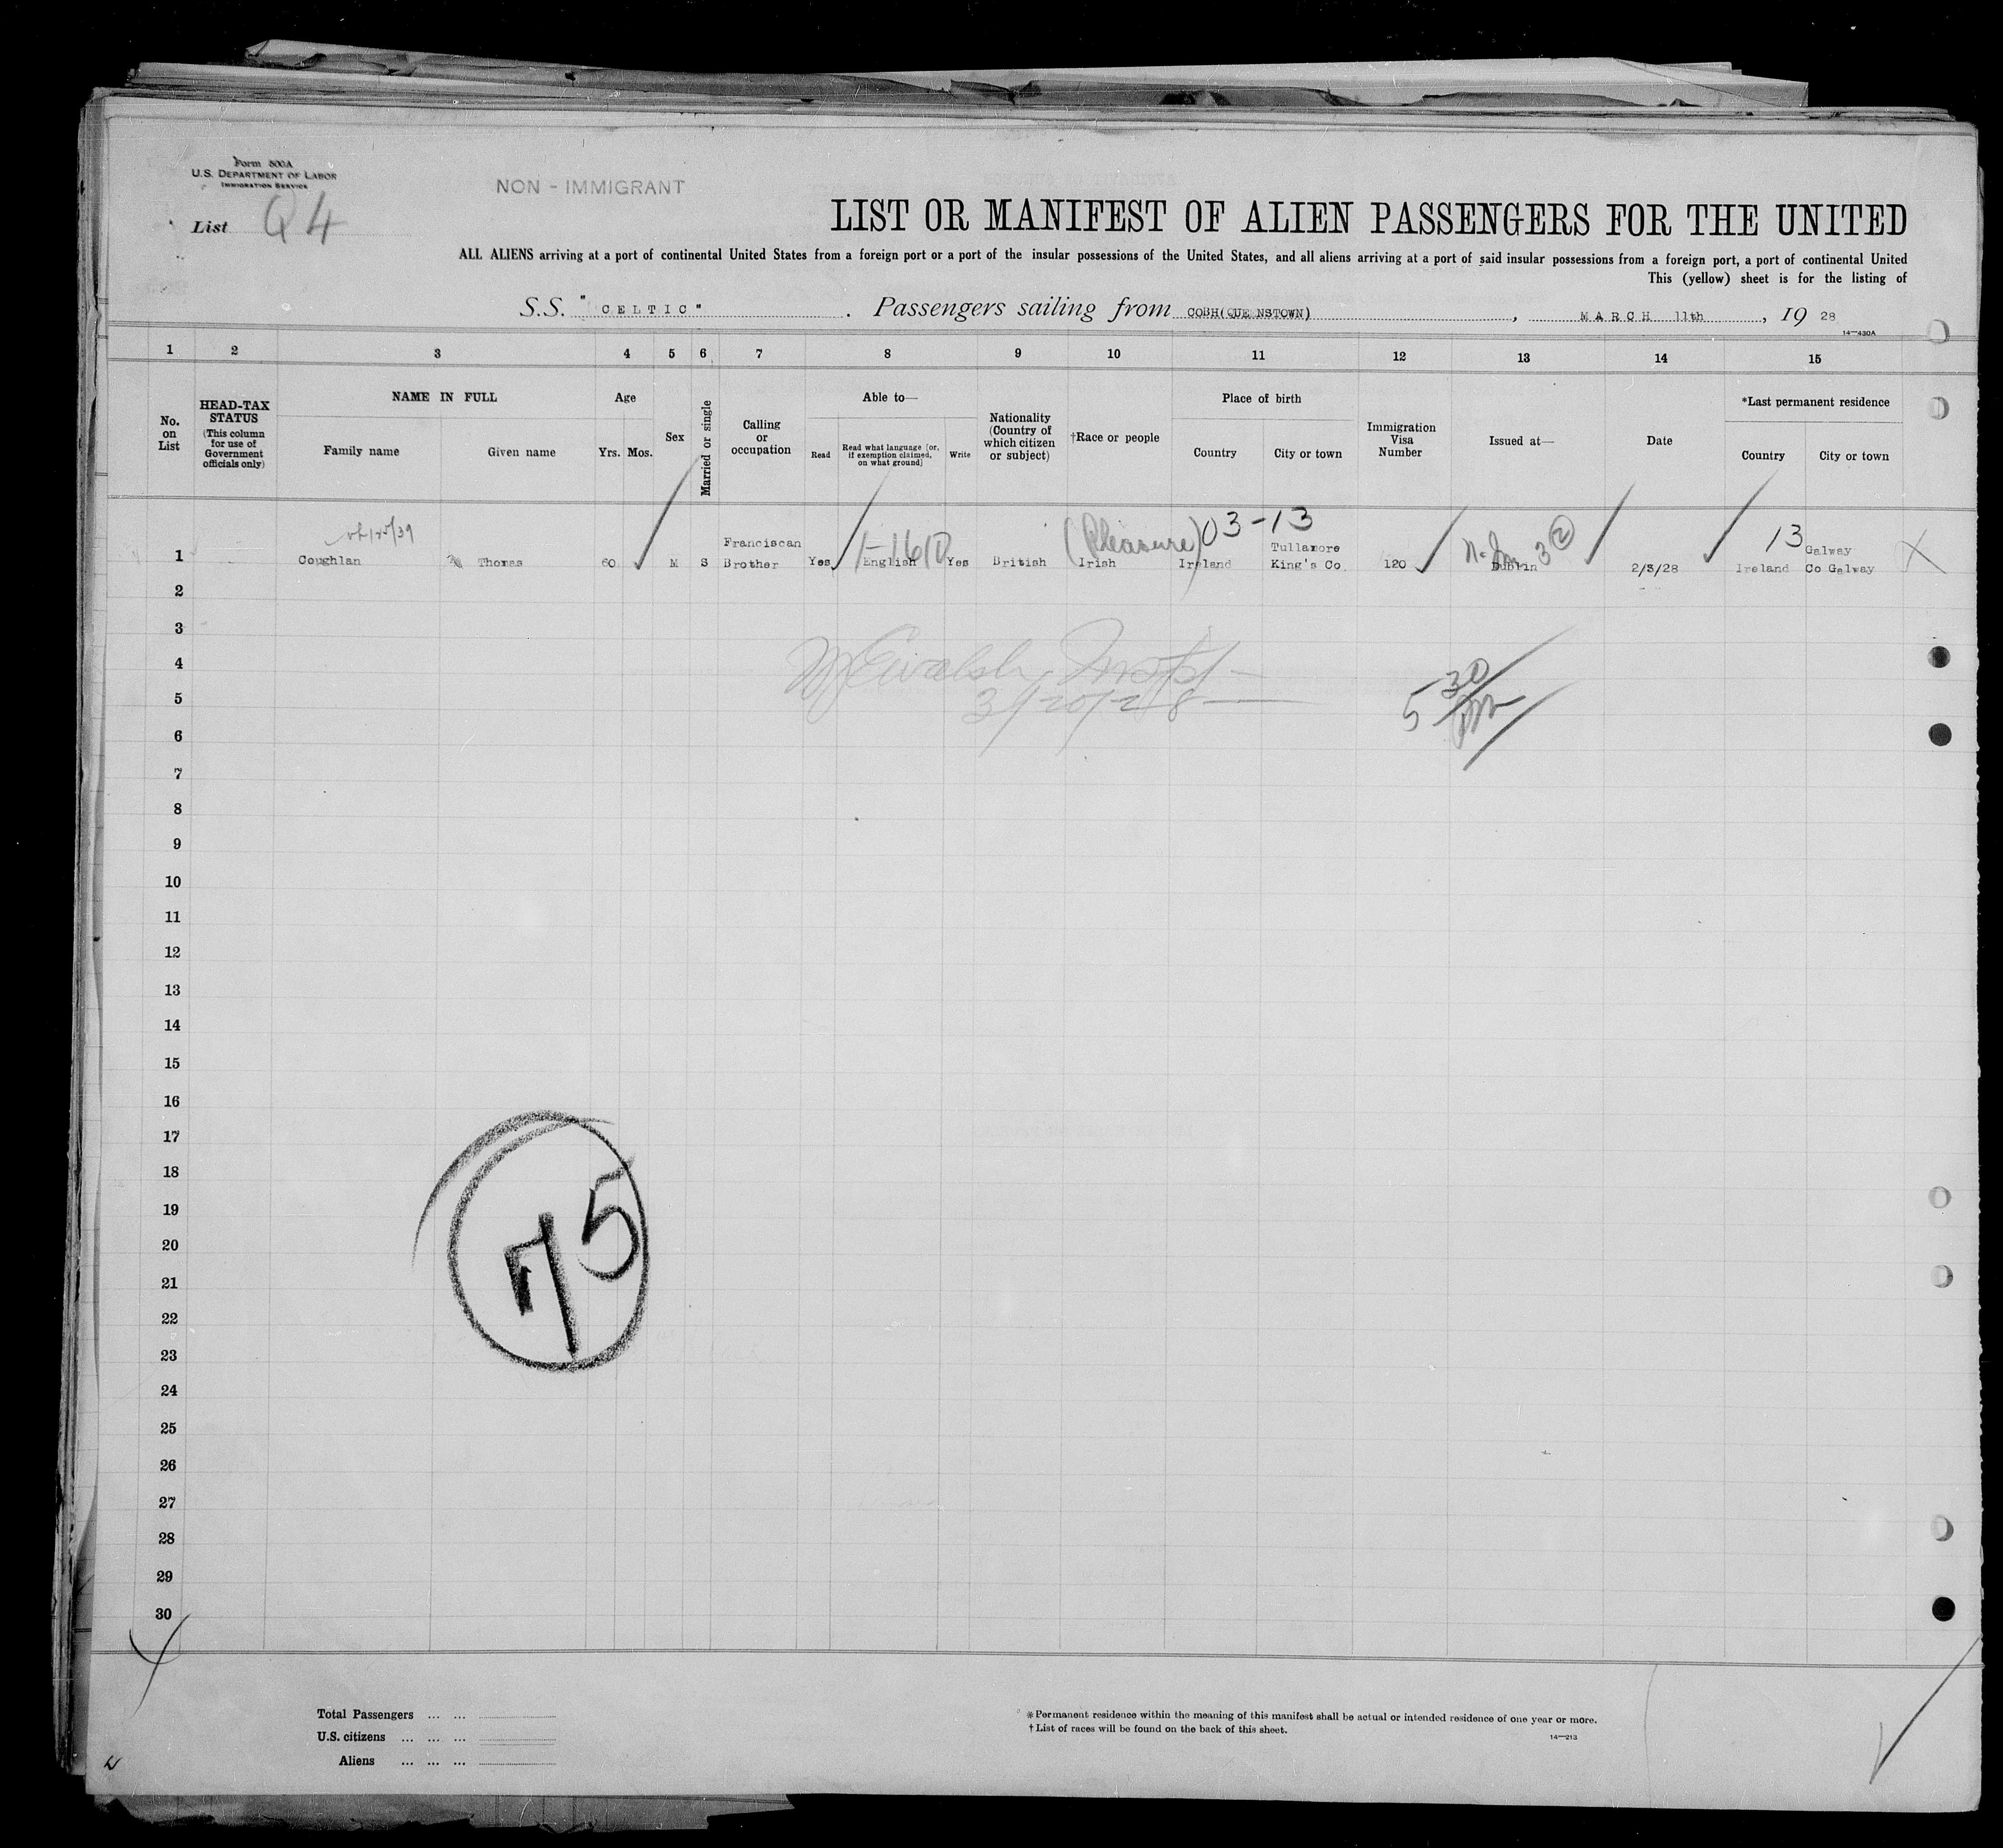 Form 500A
U.S. DEPARTMENT OF LABOR
IMMIGRATION SERVICE
NON - IMMIGRANT
List Q4
LIST OR MANIFEST OF ALIEN PASSENGERS FOR THE UNITED
ALL ALIENS arriving at a port of continental United States from a foreign port or a port of the insular possessions of the United States, and all aliens arriving at a port of said insular possessions from a foreign port, a port of continental United
This (yellow) sheet is for the listing of
S.S. "CELTIC". Passengers sailing from COBH(QUEENSTOWN), MARCH 11th, 19 28
14—430A
1 2 3 4 5 6 7 8 9 10 11 12 13 14 15
No. on List
HEAD-TAX STATUS (This column for use of Government officials only)
NAME IN FULL
Family name
Given name
Age
Yrs. Mos.
Sex
Married or single
Calling or occupation
Able to—
Read
Read what language [or, if exemption claimed, on what ground]
Write
Nationality (Country of which citizen or subject)
†Race or people
Place of birth
Country
City or town
Immigration Visa Number
Issued at—
Date
*Last permanent residence
Country
City or town
(Pleasure) 03-13
1 Coughlan Thomas 60 M S Franciscan Brother Yes English Yes British Irish Ireland Tullamore King's Co. 120 Dublin 2/3/28 13 Ireland Galway Co Galway X
2
3
4
5
3/20/28
5 30 pm
6
7
8
9
10
11
12
13
14
15
16
17
18
19
20
21
22
23
24
25
26
27
28
29
30
75
Total Passengers ... ...
U.S. citizens ... ... ...
Aliens ... ... ...
* Permanent residence within the meaning of this manifest shall be actual or intended residence of one year or more.
† List of races will be found on the back of this sheet.
14—213